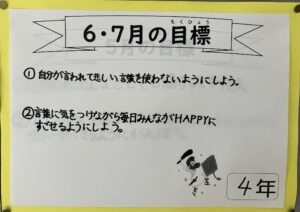 もくひょう
6・7月の目標
①自分が言われて悲しい言葉を使わないようにしよう。
②言葉に気をつけながら毎日みんながHAPPYに
すごせるようにしよう。
4年